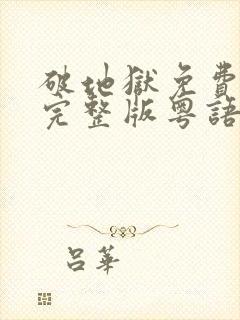 破地獄免費
完整版粵語
呂華